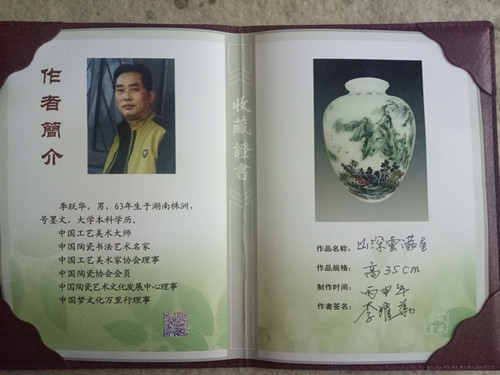 作者簡介
李跃华，男，63年生于湖南株洲，
号墨文，大学本科学历。
中国工艺美术大师
中国陶瓷书法艺术名家
中国工艺美术家协会理事
中国陶瓷协会会员
中国陶瓷艺术文化发展中心理事
中国梦文化万里行理事
收藏證書
作品名称：山深雲滿屋
作品规格：高35cm
制作时间：丙申年
作者签名：李耀华